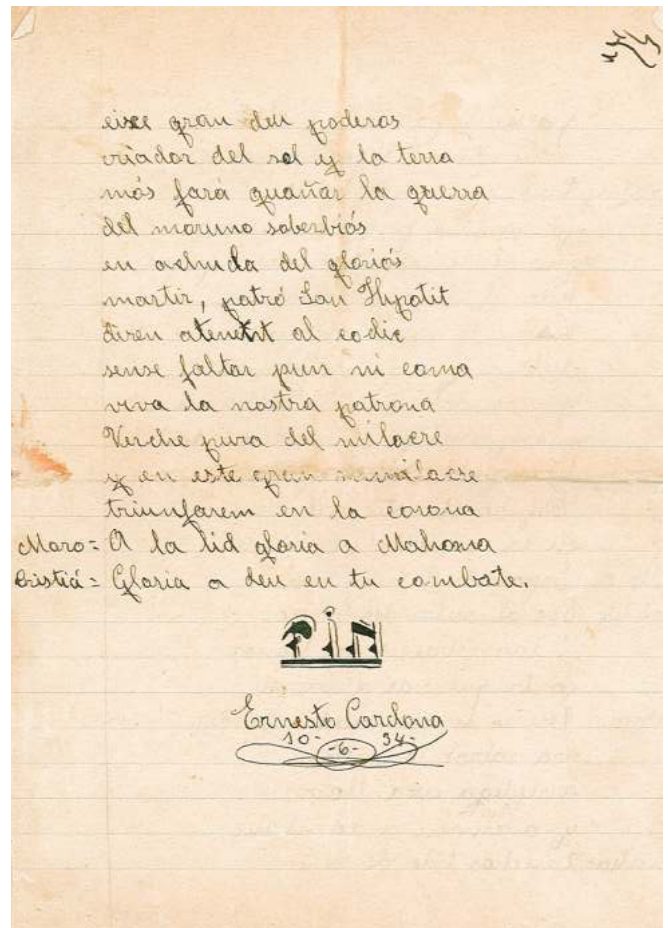 eixe gran deu poderos
criador del sol y la terra
más fará guañar la guerra
del moruno soberbiós
en achuda del gloriós
martir, patró San Hypolit
diren atent al codic
sense faltar pun ni coma
viva la nostra patrona
Verche pura del milacre
y en este gran similacre
triunfarem en la corona
Moro= A la lid gloria a Mahoma
Cristiá= Gloria a deu en tu combate.
FIN
Ernesto Cardona
10-6-34-